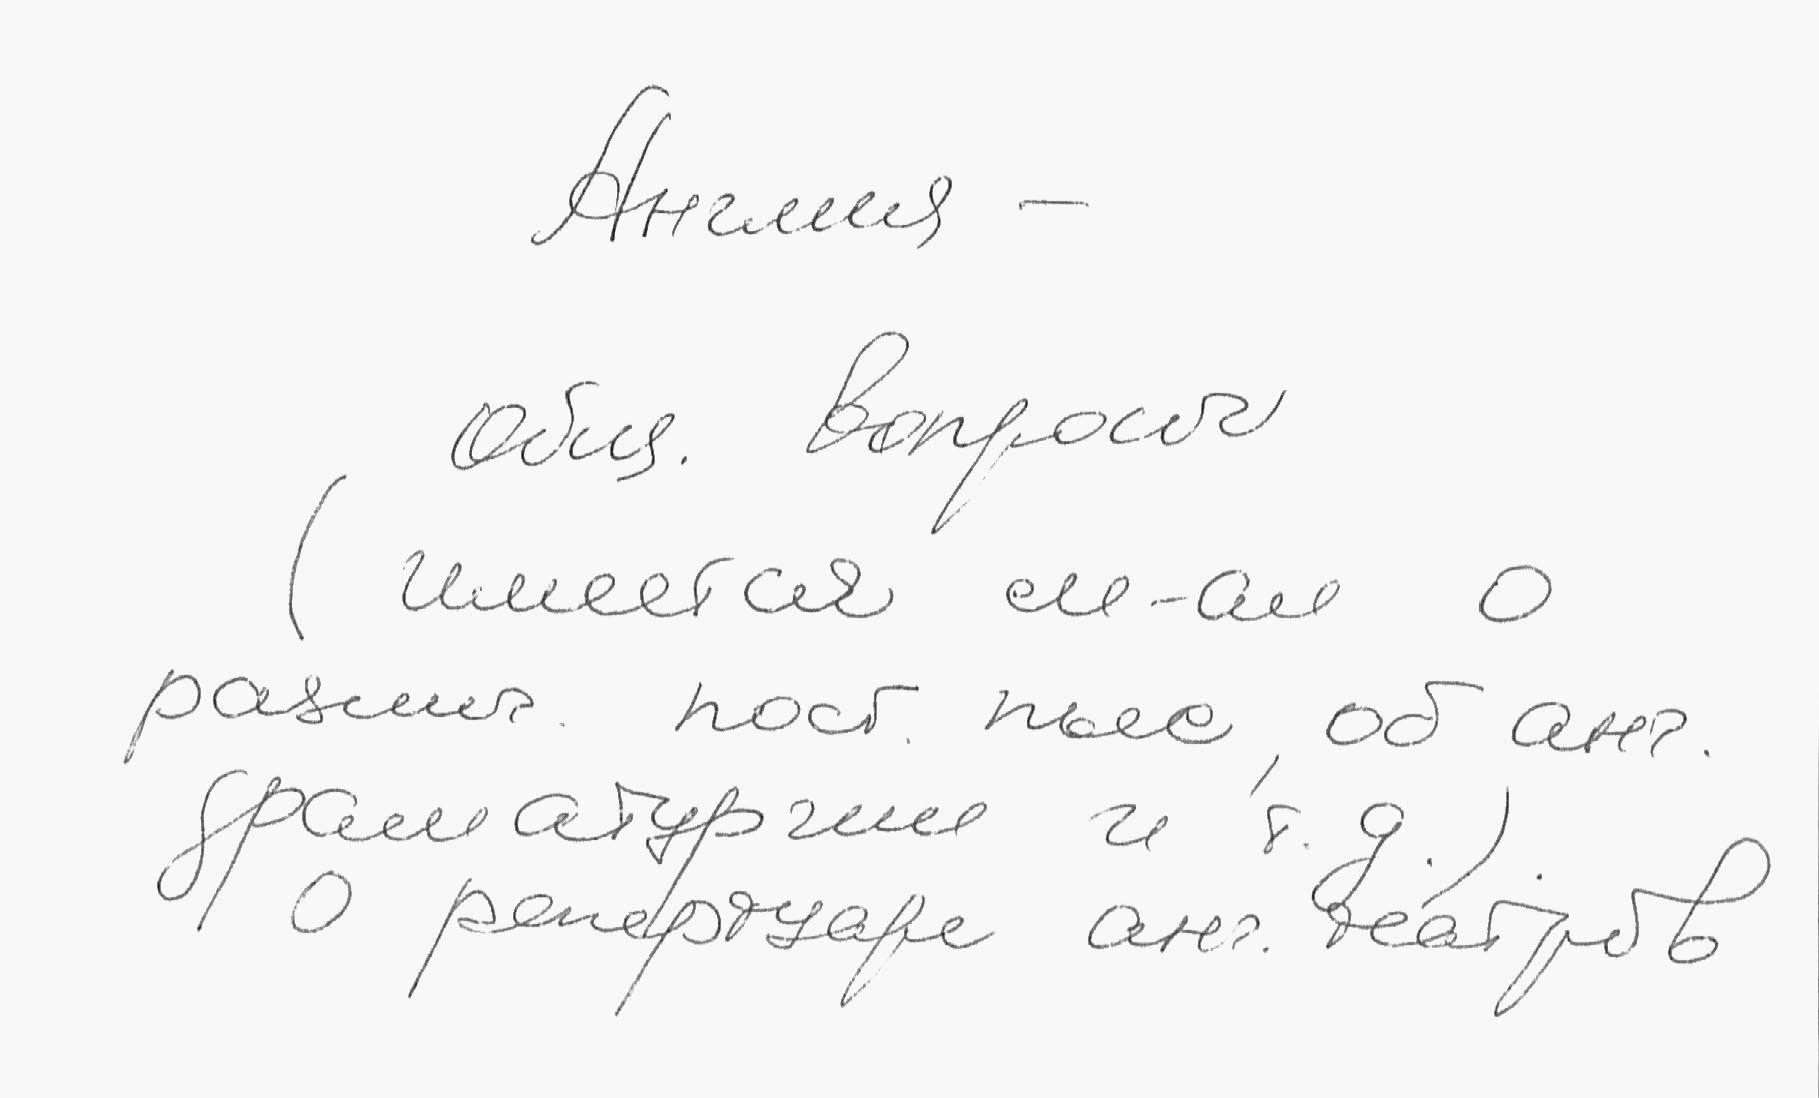 Англия –
Общ. вопросы
(имеется м-ал о
различ. пост. пьес, об анг.
драматургии и т.д.)
о репертуаре анг. театров